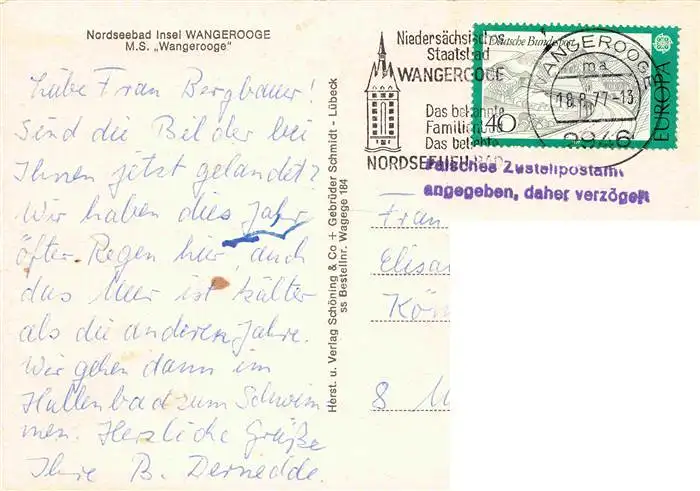 Nordseebad Insel WANGEROOGE
M.S. „Wangerooge"
Liebe Frau Bergbauer!
Sind die Bilder bei
Ihnen jetzt gelandet?
Wir haben dies Jahr
öfter Regen hier, auch
das Meer ist kälter
als die anderen Jahre.
Wir gehen dann im
Hallenbad zum Schwim
men. Herzliche Grüße
Ihre B. Dernedde.
Herst. u. Verlag Schöning & Co + Gebrüder Schmidt - Lübeck
ss Bestellnr. Wagege 184
Niedersächsisches
Staatsbad
WANGEROOGE
Das bekannte
Familien
Das beliebte
NORDSEEHEILBAD
Deutsche Bundespost
40
EUROPA
WANGEROOGE
ma
18.8.77-13
2946
Falsches Zustellpostamt
angegeben, daher verzögert
Frau
Elisa
Kön
8 M